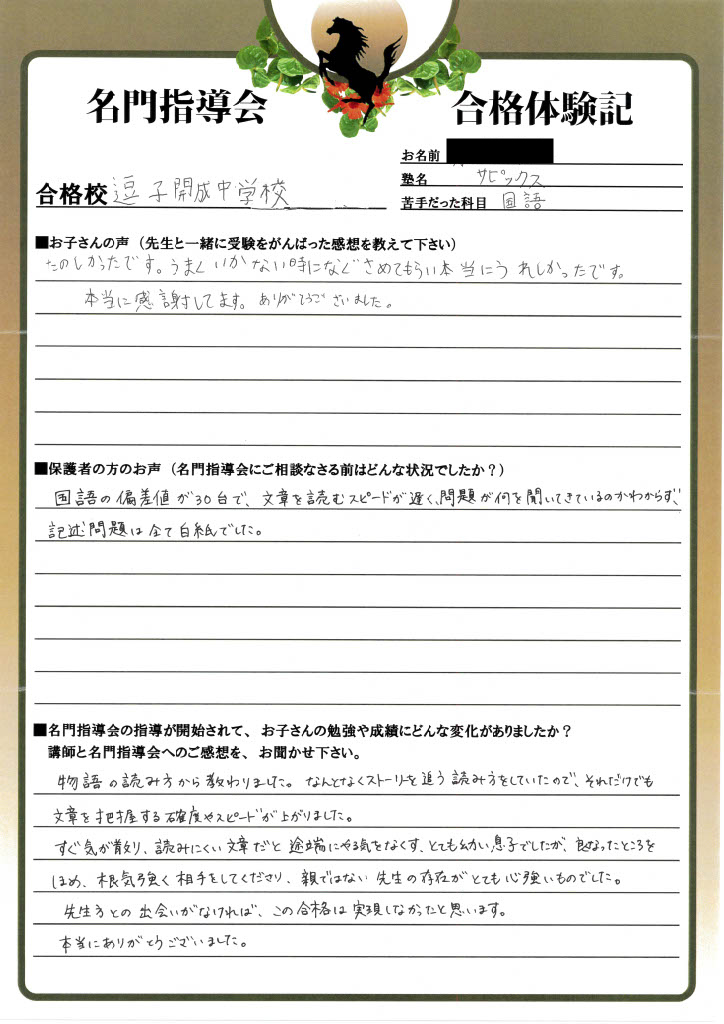 名門指導会 合格体験記
お名前
合格校 逗子開成中学校
塾名 サピックス
苦手だった科目 国語
■お子さんの声（先生と一緒に受験をがんばった感想を教えて下さい）
たのしかったです。うまくいかない時になぐさめてもらい本当にうれしかったです。
本当に感謝してます。ありがとうございました。
■保護者の方のお声（名門指導会にご相談なさる前はどんな状況でしたか？）
国語の偏差値が30台で、文章を読むスピードが遅く、問題が何を聞いてきているのかわからず、
記述問題は全て白紙でした。
■名門指導会の指導が開始されて、お子さんの勉強や成績にどんな変化がありましたか？
講師と名門指導会へのご感想を、お聞かせ下さい。
物語の読み方から教わりました。なんとなくストーリーを追う読み方をしていたので、それだけでも
文章を把握する確度やスピードが上がりました。
すぐ気が散り、読みにくい文章だと途端にやる気をなくす、とても幼い息子でしたが、良なったところを
ほめ、根気強く相手をしてくださり、親ではない先生の存在がとても心強いものでした。
先生方との出会いがなければ、この合格は実現しなかったと思います。
本当にありがとうございました。